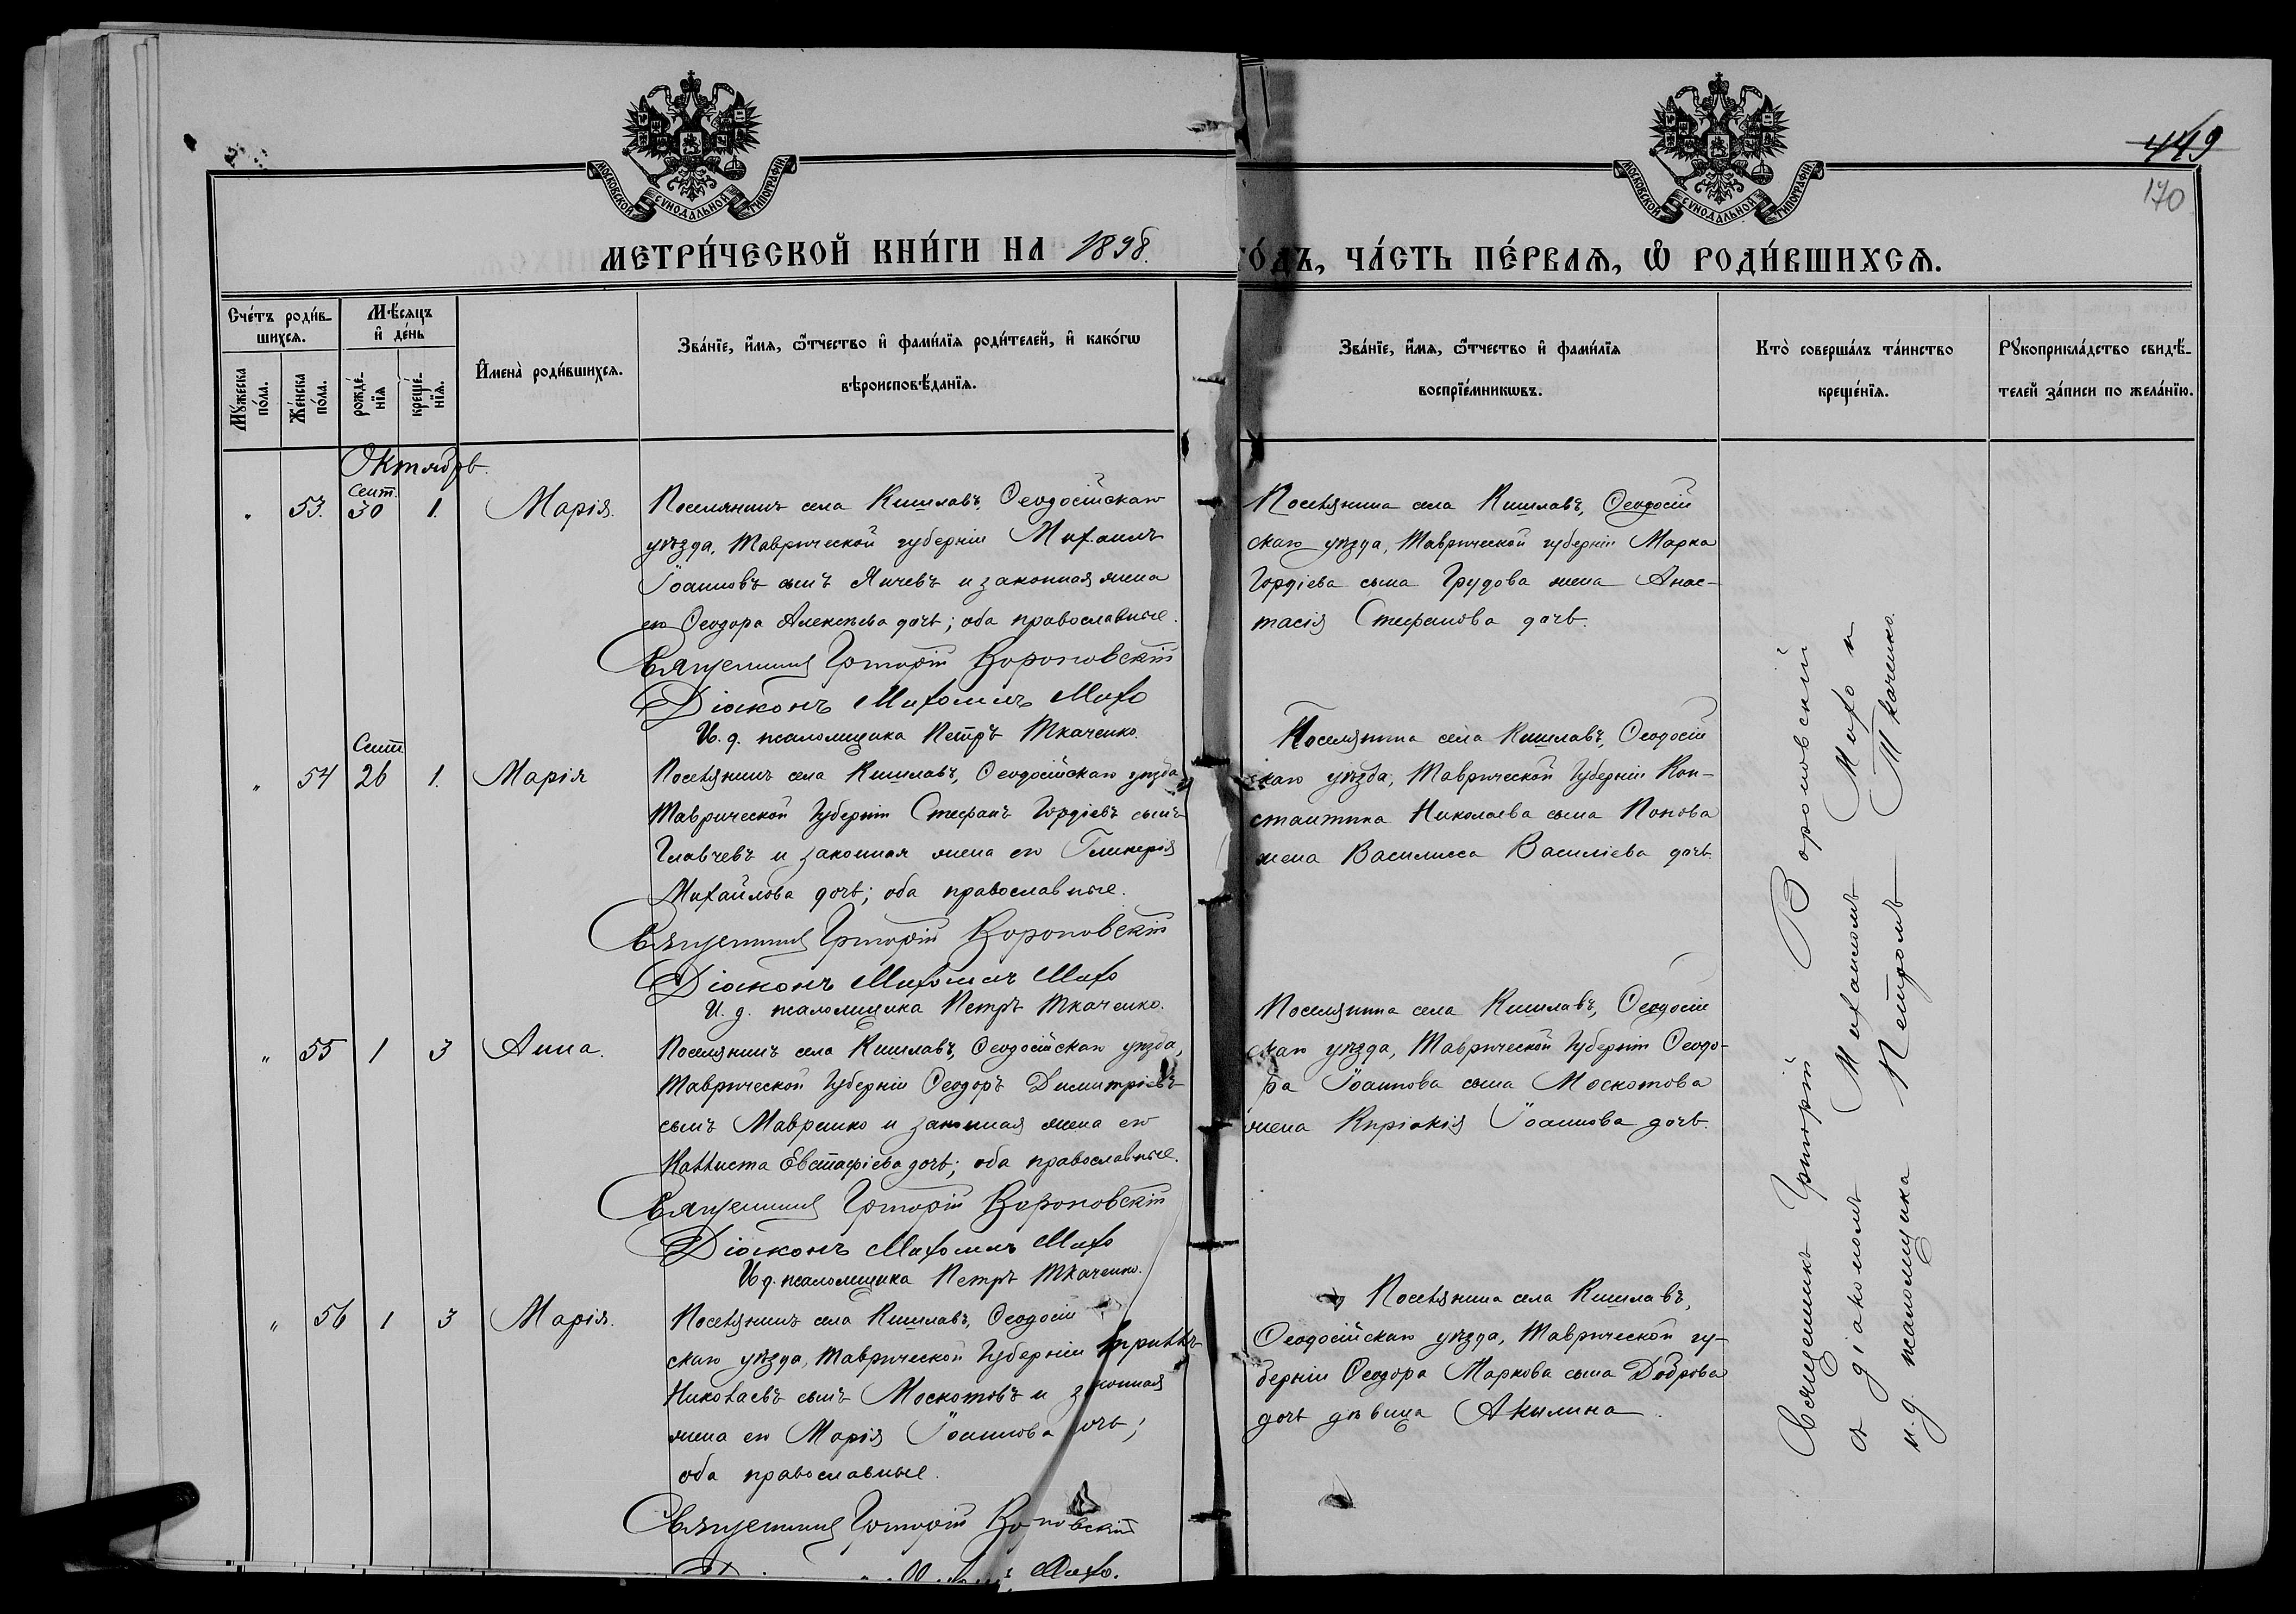 МОСКОВСКОЙ СѴНОДАЛЬНОЙ ТИПОГРАФІИ
МОСКОВСКОЙ СѴНОДАЛЬНОЙ ТИПОГРАФІИ
449
170
МЕТРИ́ЧЕСКОЙ КНИ́ГИ НА 1898.
ГО́ДЪ, ЧА́СТЬ ПЕ́РВАѦ, Ѡ҆ РОДИ́ВШИХСѦ.
Сче́тъ роди́в-
шихсѧ.
Мꙋ́жеска по́ла.
Же́нска по́ла.
Мѣ́сѧцъ
и҆ де́нь
рожде́-
нїѧ
креще́-
нїѧ.
И҆мена̀ роди́вшихсѧ.
Зва́нїе, и҆́мѧ, ѻ҆́тчество и҆ фами́лїѧ роди́телей, и҆ како́гѡ
вѣроисповѣ́данїѧ.
Зва́нїе, и҆́мѧ, ѻ҆́тчество и҆ фами́лїѧ
воспрїе́мникѡвъ.
Кто̀ соверша́лъ та́инство
креще́нїѧ.
Рꙋкоприкла́дство свидѣ́-
телей за́писи по жела́нїю.
Октябрь.
„ 53. Сент. 30 1. Марія.
Поселянинъ села Кишлавъ, Ѳеодосійскаго
уѣзда, Таврической губерніи Михаилъ
Іоанновъ сынъ Яичевъ и законная жена
его Ѳеодора Алексѣева дочь; оба православные.
Священникъ Григорій Вороновскій
Діаконъ Михаилъ Махо
И. д. псаломщика Петръ Ткаченко.
Поселянина села Кишлавъ, Ѳеодосій
скаго уѣзда, Таврической губерніи Марка
Гордіева сына Грудова жена Анас-
тасія Стефанова дочь.
„ 54 Сент. 26 1. Марія
Поселянинъ села Кишлавъ, Ѳеодосійскаго уѣзда
Таврической Губерніи Стефанъ Гордіевъ сынъ
Главчевъ и законная жена его Гликерія
Михайлова дочь; оба православные.
Священникъ Григорій Вороновскій
Діаконъ Михаилъ Махо
И. д. псаломщика Петръ Ткаченко.
Поселянина села Кишлавъ, Ѳеодосій
скаго уѣзда, Таврической Губерніи Кон-
стантина Николаева сына Попова
жена Василисса Василіева дочь.
„ 55 1 3 Анна.
Поселянинъ села Кишлавъ, Ѳеодосійскаго уѣзда,
Таврической Губерніи Ѳеодоръ Димитріевъ
сынъ Мавренко и законная жена его
Каллиста Евстафіева дочь; оба православные.
Священникъ Григорій Вороновскій
Діаконъ Михаилъ Махо
И. д. псаломщика Петръ Ткаченко.
Поселянина села Кишлавъ, Ѳеодосій
скаго уѣзда, Таврической Губерніи Ѳеодо-
ра Іоаннова сына Москотова
жена Киріакія Іоаннова дочь.
„ 56 1 3 Марія.
Поселянинъ села Кишлавъ, Ѳеодосій
скаго уѣзда, Таврической Губерніи
Николаевъ сынъ Москотовъ и законная
жена его Марія Іоаннова дочь;
оба православные.
Священникъ Григорій Вороновскій
Махо.
Поселянина села Кишлавъ,
Ѳеодосійскаго уѣзда, Таврической гу-
берніи Ѳеодора Маркова сына Доброва
дочь дѣвица Акилина.
Священникъ Григорій Вороновскій
съ діакономъ Михаиломъ Махо и
и.д. псаломщика Петромъ Ткаченко.